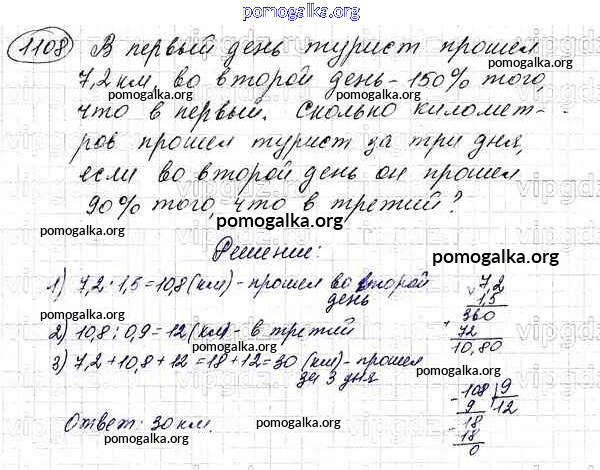 pomogalka.org
1108 В первый день турист прошел
7,2 км, во второй день - 150% того,
pomogalka.org pomogalka.org
что в первый. Сколько километ-
ров прошел турист за три дня,
pomogalka.org
если во второй день он прошел
90% того, что в третий?
pomogalka.org
pomogalka.org pomogalka.org
Решение:
pomogalka.org
1) 7,2 · 1,5 = 10,8 (км) - прошел во второй
день
2) 10,8 : 0,9 = 12 (км) - в третий
3) 7,2 + 10,8 + 12 = 18 + 12 = 30 (км) - прошел
за 3 дня
Ответ: 30 км.
7,2
1,5
360
+ 72
10,80
- 108 9
9 12
- 18
18
0
pomogalka.org
pomogalka.org
pomogalka.org
pomogalka.org
pomogalka.org